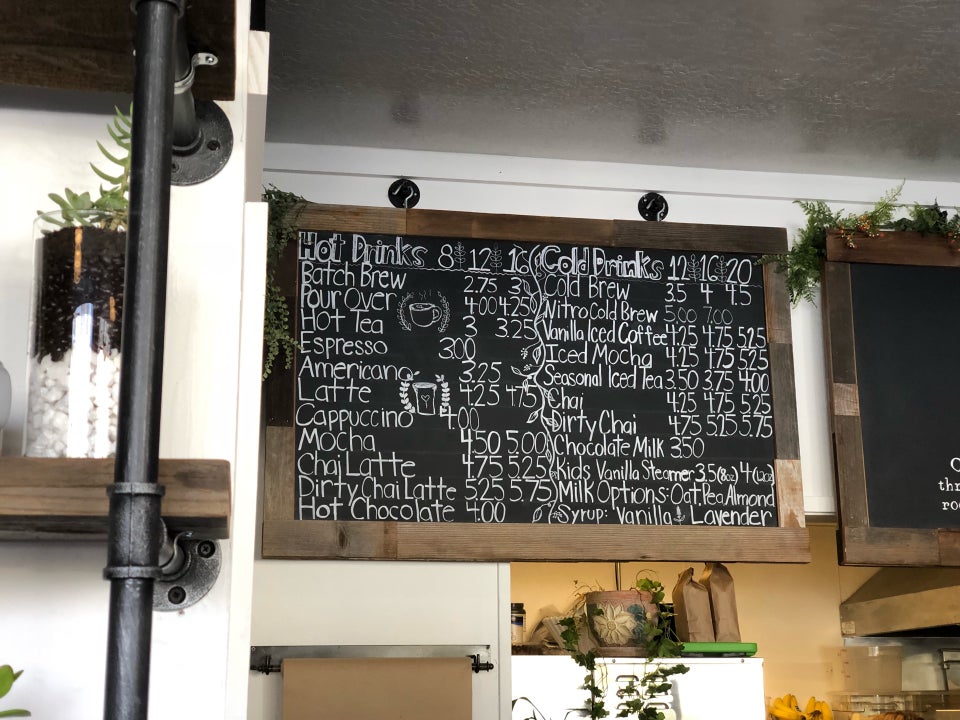 Hot Drinks 8 12 16
Batch Brew 2.75 3
Pour Over 4.00 4.250
Hot Tea 3 3.25
Espresso 3.00
Americano 3.25
Latte 4.25 4.75
Cappuccino 4.00
Mocha 4.50 5.00
Chai Latte 4.75 5.25
Dirty Chai Latte 5.25 5.75
Hot Chocolate 4.00
Cold Drinks 12 16 20
Cold Brew 3.5 4 4.5
Nitro Cold Brew 5.00 7.00
Vanilla Iced Coffee 4.25 4.75 5.25
Iced Mocha 4.25 4.75 5.25
Seasonal Iced Tea 3.50 3.75 4.00
Chai 4.25 4.75 5.25
Dirty Chai 4.75 5.25 5.75
Chocolate Milk 3.50
Kids Vanilla Steamer 3.5(8oz) 4(12oz)
Milk Options: Oat Pea Almond
Syrup: Vanilla Lavender